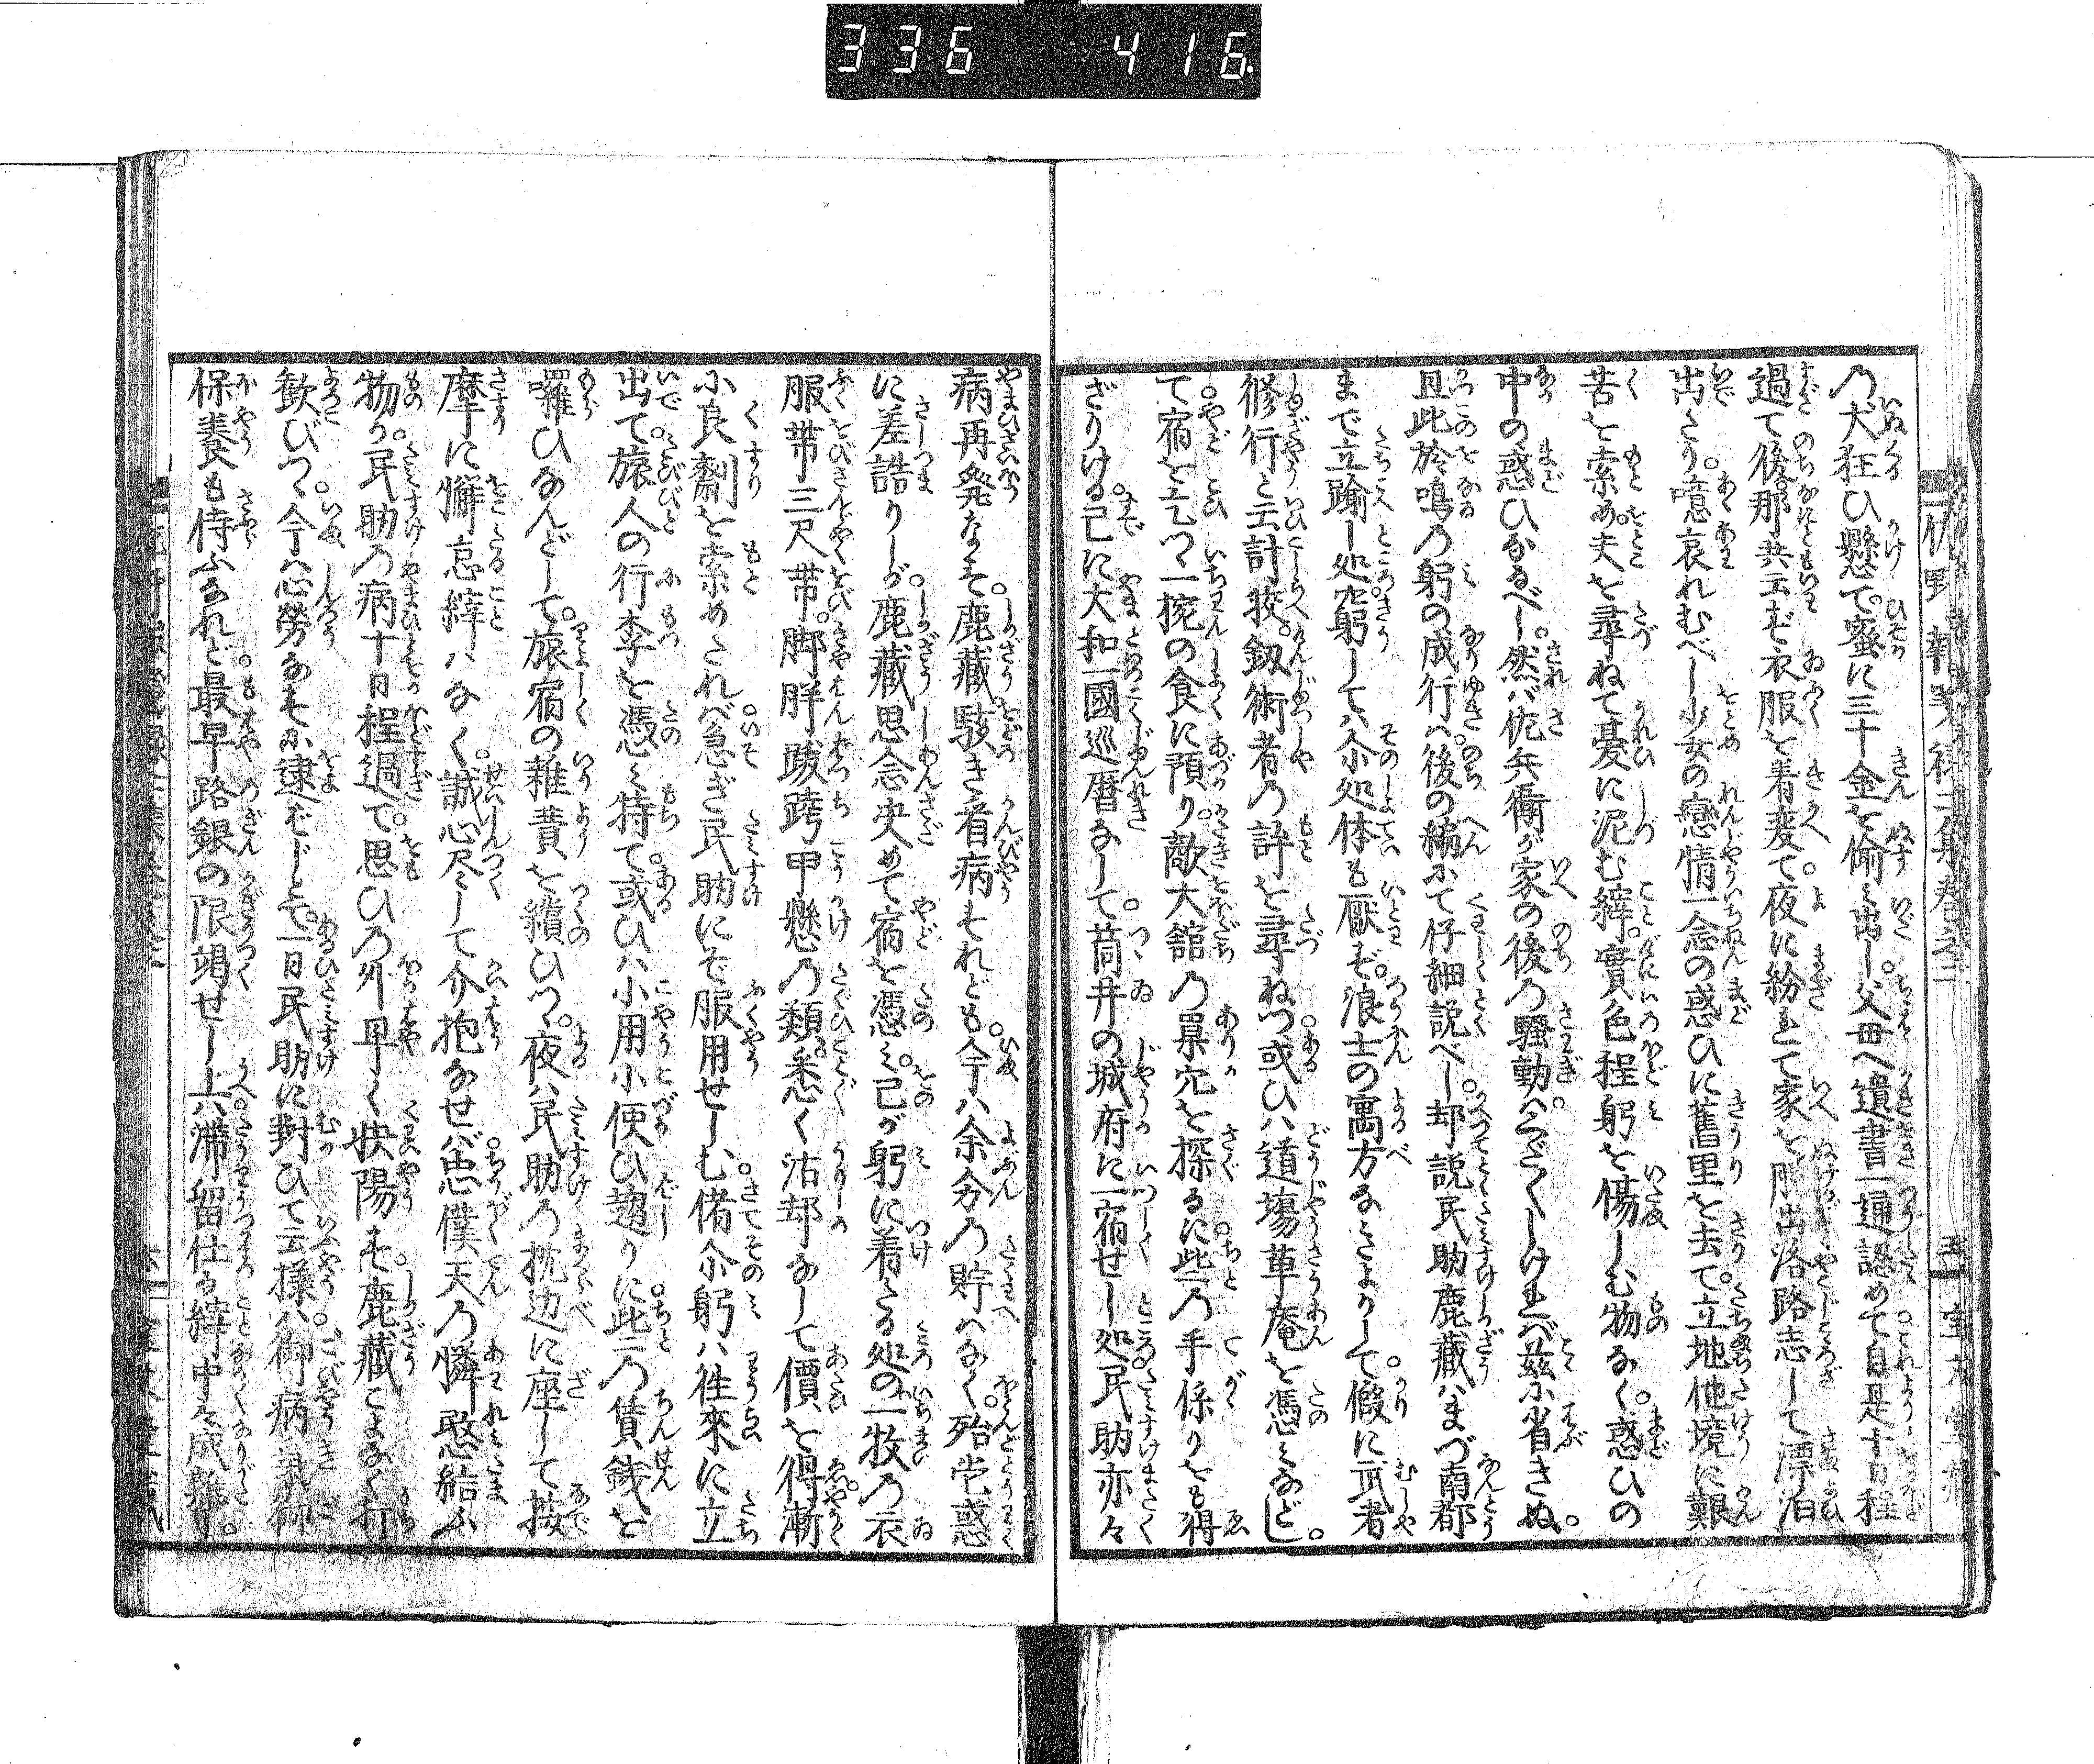 336 416
乃犬狂ひ懸て。蜜に三十金を偷み出し。父母へ遺書一通認めて自是十日程
過て後。那共云ず衣服を着変て。夜に紛れて家を脱出洛路志して漂泊
出たり。噫哀れむべし少女の戀情一念の惑ひに舊里を去て。立地他境に艱
苦を索め。夫を尋ねて憂に泥む縡。實色程躬を傷しむ物なく。惑ひの
中の惑ひなるべし。然バ仇兵衞が家の後乃騒動ハくだくしければ茲に省きぬ。
且此於鳴乃躬の成行ハ。後の編にて仔細説べし。却説民助鹿藏ハまづ南都
まで立踰し処。窮しては尓処体も厭ず。浪士の寓方なきよりして。假に武者
修行と云計較。釼術者乃許を尋ねつ。或ひハ道場草庵を憑みなどし。
て宿を乞つゝ一椀の食に預り。敵大舘乃巣穴を探るに些乃手係りをも得
ざりける。已に大和一國巡暦なして。筒井の城府に一宿せし処。民助亦々
病再発なす。鹿藏駭き看病すれども。今ハ余分乃貯へなく。殆当惑
に差詰りしが。鹿藏思念决めて宿を憑み。己が躬に着たる処の一枚乃衣
服帯三尺帯。脚胖跋跨甲懸乃類。悉く沽却なして價を得。漸
に良劑を索めたれバ。急ぎ民助にぞ服用せしむ。偖尓躬ハ徃來に立
出て。旅人の行李を憑み持て。或ひハ小用小使ひ趨りに。些乃賃銭を
囉ひなんどして。旅宿の雑費を續ひつ。夜ハ民助乃枕边に座して按
摩に懈怠縡ハなく。誠心尽して介抱なせバ。忠僕天乃憐愍給ふ
物か。民助乃病十日程過て。思ひ乃外早く快陽す。鹿藏こよなく打
歓びつゝ。今ハ心勞なすに逮ずとて。一日民助に對ひて云様ハ。御病氣御
保養も侍ふなれど。最早路銀の限竭せし上ハ。滞留仕る縡中々成難し。